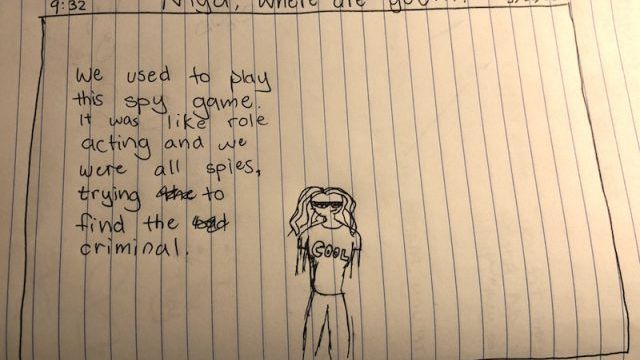 9:32
where are you
We used to play
this spy game.
It was like role
acting and we
were all spies,
trying to
find the
criminal.
COOL